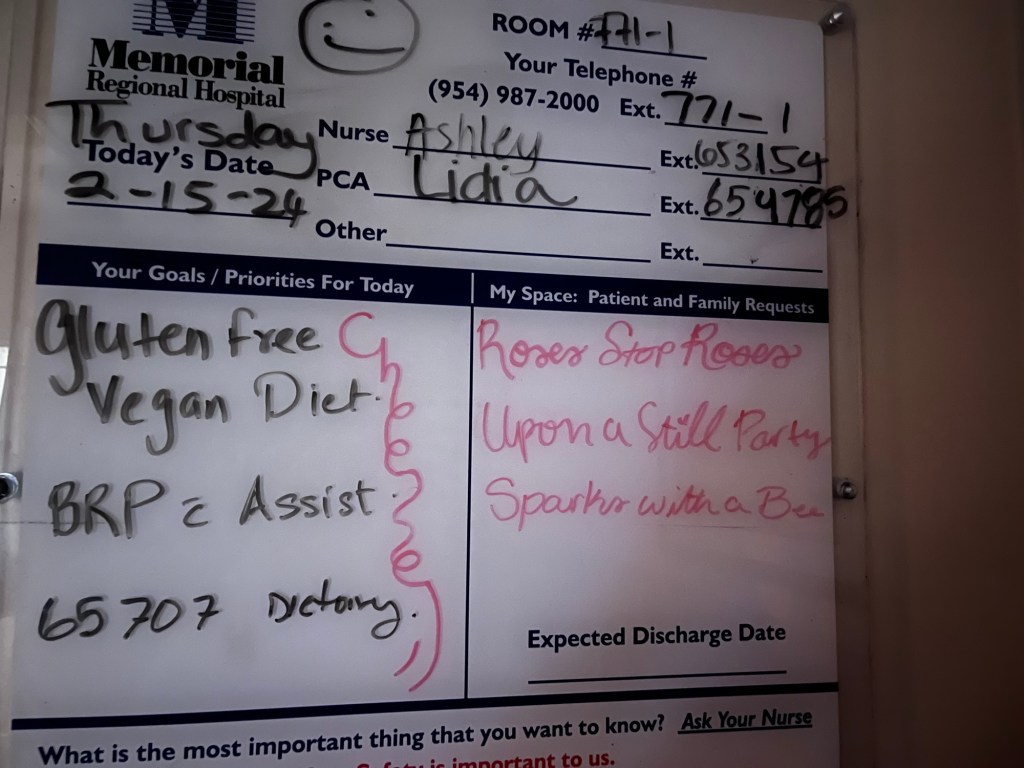 Memorial
Regional Hospital
ROOM # 771-1
Your Telephone #
(954) 987-2000 Ext. 771-1
Thursday
Today's Date
2-15-24
Nurse Ashley Ext. 653154
PCA Lidia Ext. 654785
Other Ext.
Your Goals / Priorities For Today
Gluten free
Vegan Diet.
BRP c Assist.
65707
My Space: Patient and Family Requests
Roses Stop Roses
Upon a Still Party
Sparks with a Bee
Expected Discharge Date
What is the most important thing that you want to know? Ask Your Nurse
Safety is important to us.